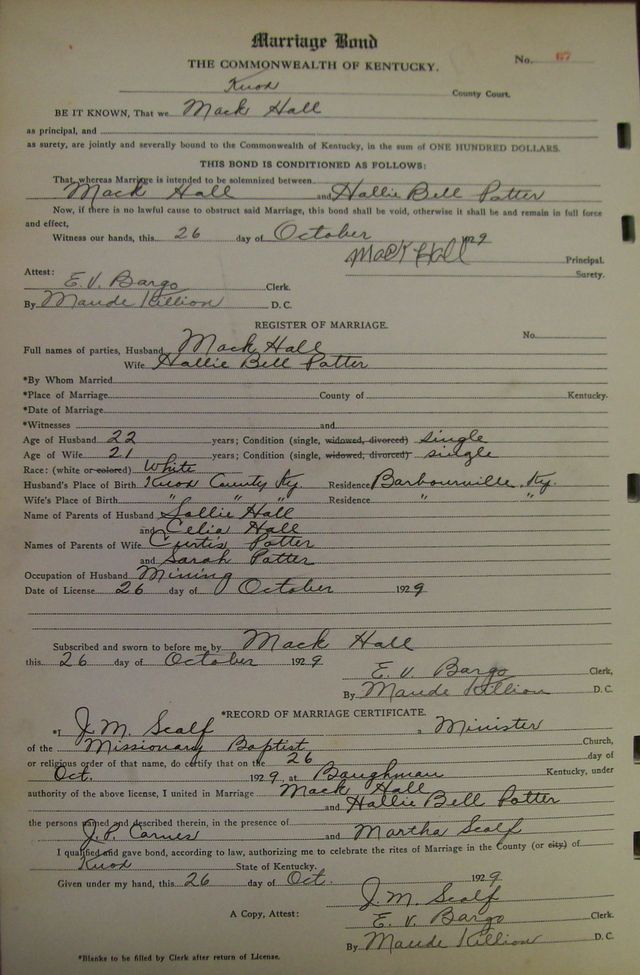 Marriage Bond
THE COMMONWEALTH OF KENTUCKY.
No. 67
Knox County Court.
BE IT KNOWN, That we Mack Hall
as principal, and
as surety, are jointly and severally bound to the Commonwealth of Kentucky, in the sum of ONE HUNDRED DOLLARS.
THIS BOND IS CONDITIONED AS FOLLOWS:
That whereas Marriage is intended to be solemnized between
Mack Hall and Hallie Bell Potter
Now, if there is no lawful cause to obstruct said Marriage, this bond shall be void, otherwise it shall be and remain in full force
and effect,
Witness our hands, this 26 day of October 1929
Mack Hall Principal.
Surety.
Attest:
E. V. Bargo Clerk.
By Maude Killion D. C.
REGISTER OF MARRIAGE.
No.
Full names of parties, Husband Mack Hall
Wife Hallie Bell Potter
*By Whom Married
*Place of Marriage County of Kentucky.
*Date of Marriage
*Witnesses and
Age of Husband 22 years; Condition (single, widowed, divorced) single
Age of Wife 21 years; Condition (single, widowed, divorced) single
Race: (white or colored) White
Husband's Place of Birth Knox County Ky. Residence Barbourville, Ky.
Wife's Place of Birth " " " Residence " "
Name of Parents of Husband Sollie Hall
and Celia Hall
Names of Parents of Wife Curtis Potter
and Sarah Potter
Occupation of Husband Mining
Date of License 26 day of October 1929
Subscribed and sworn to before me by Mack Hall
this 26 day of October 1929
E. V. Bargo Clerk,
By Maude Killion D. C.
*RECORD OF MARRIAGE CERTIFICATE.
*I J. M. Scalf a Minister
of the Missionary Baptist Church,
or religious order of that name, do certify that on the 26 day of
Oct. 1929, at Baughman Kentucky, under
authority of the above license, I united in Marriage Mack Hall
and Hallie Bell Potter
the persons named and described therein, in the presence of
J. P. Carnes and Martha Scalf
I qualified and gave bond, according to law, authorizing me to celebrate the rites of Marriage in the County (or city) of
Knox State of Kentucky.
Given under my hand, this 26 day of Oct. 1929
J. M. Scalf
A Copy, Attest: E. V. Bargo Clerk.
By Maude Killion D. C.
*Blanks to be filled by Clerk after return of License.